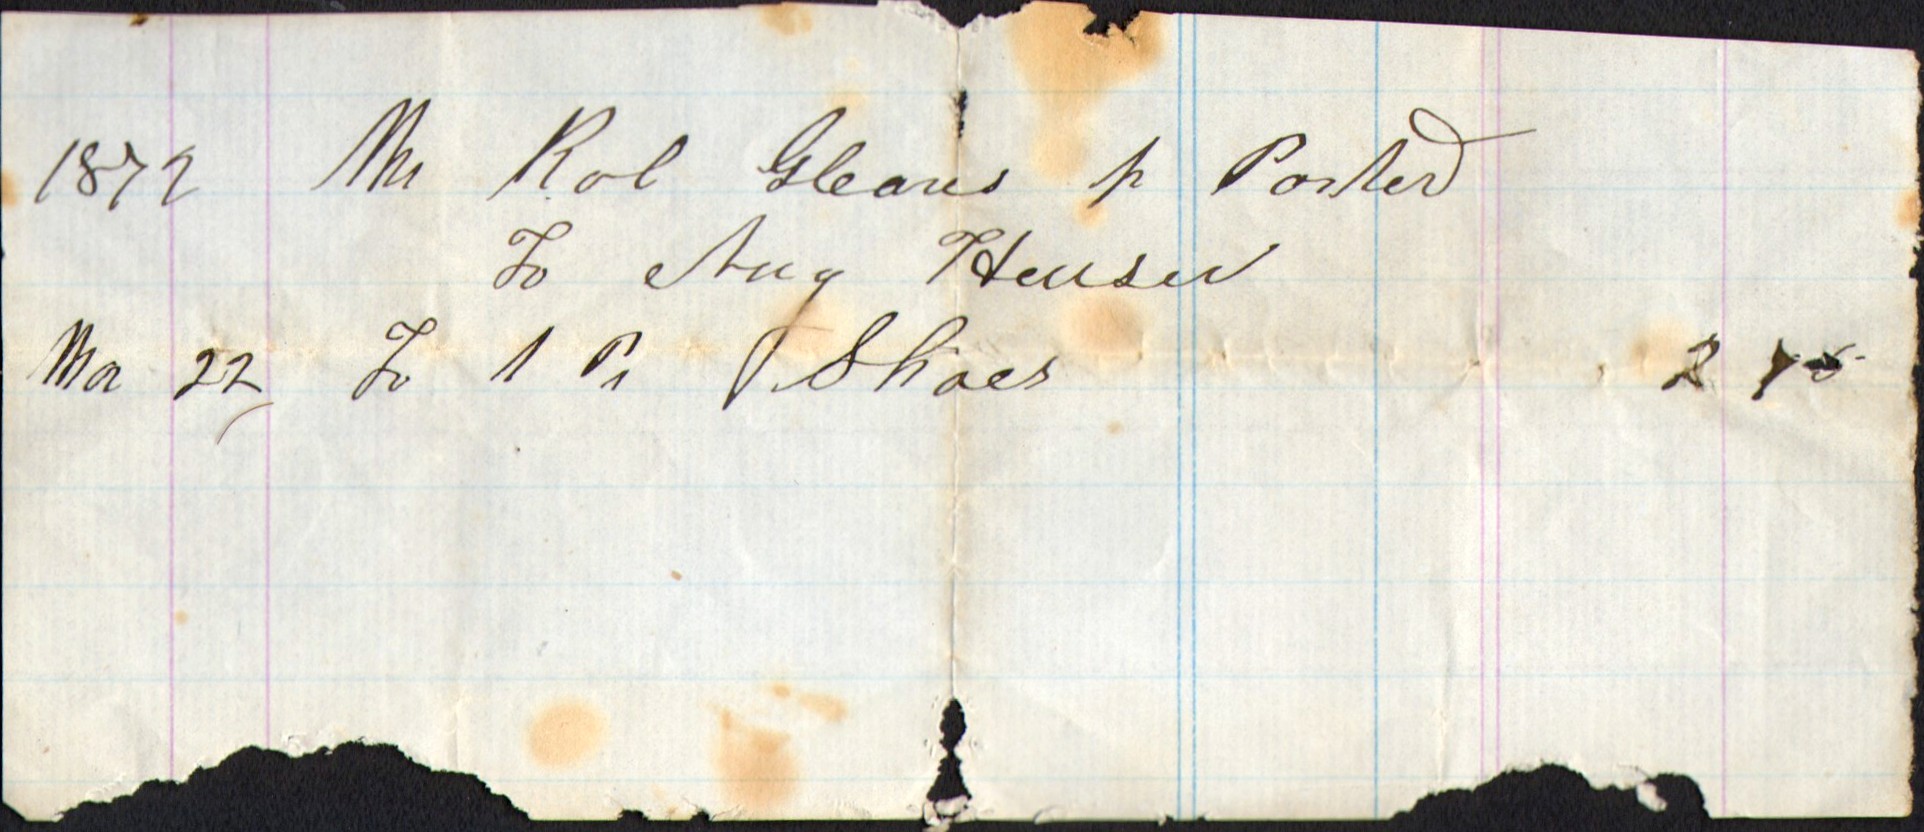 1872 Mr Rob Gleaves pr Porter
To Aug Heuser
Mar 22 To 1 Pr Shoes 2 75